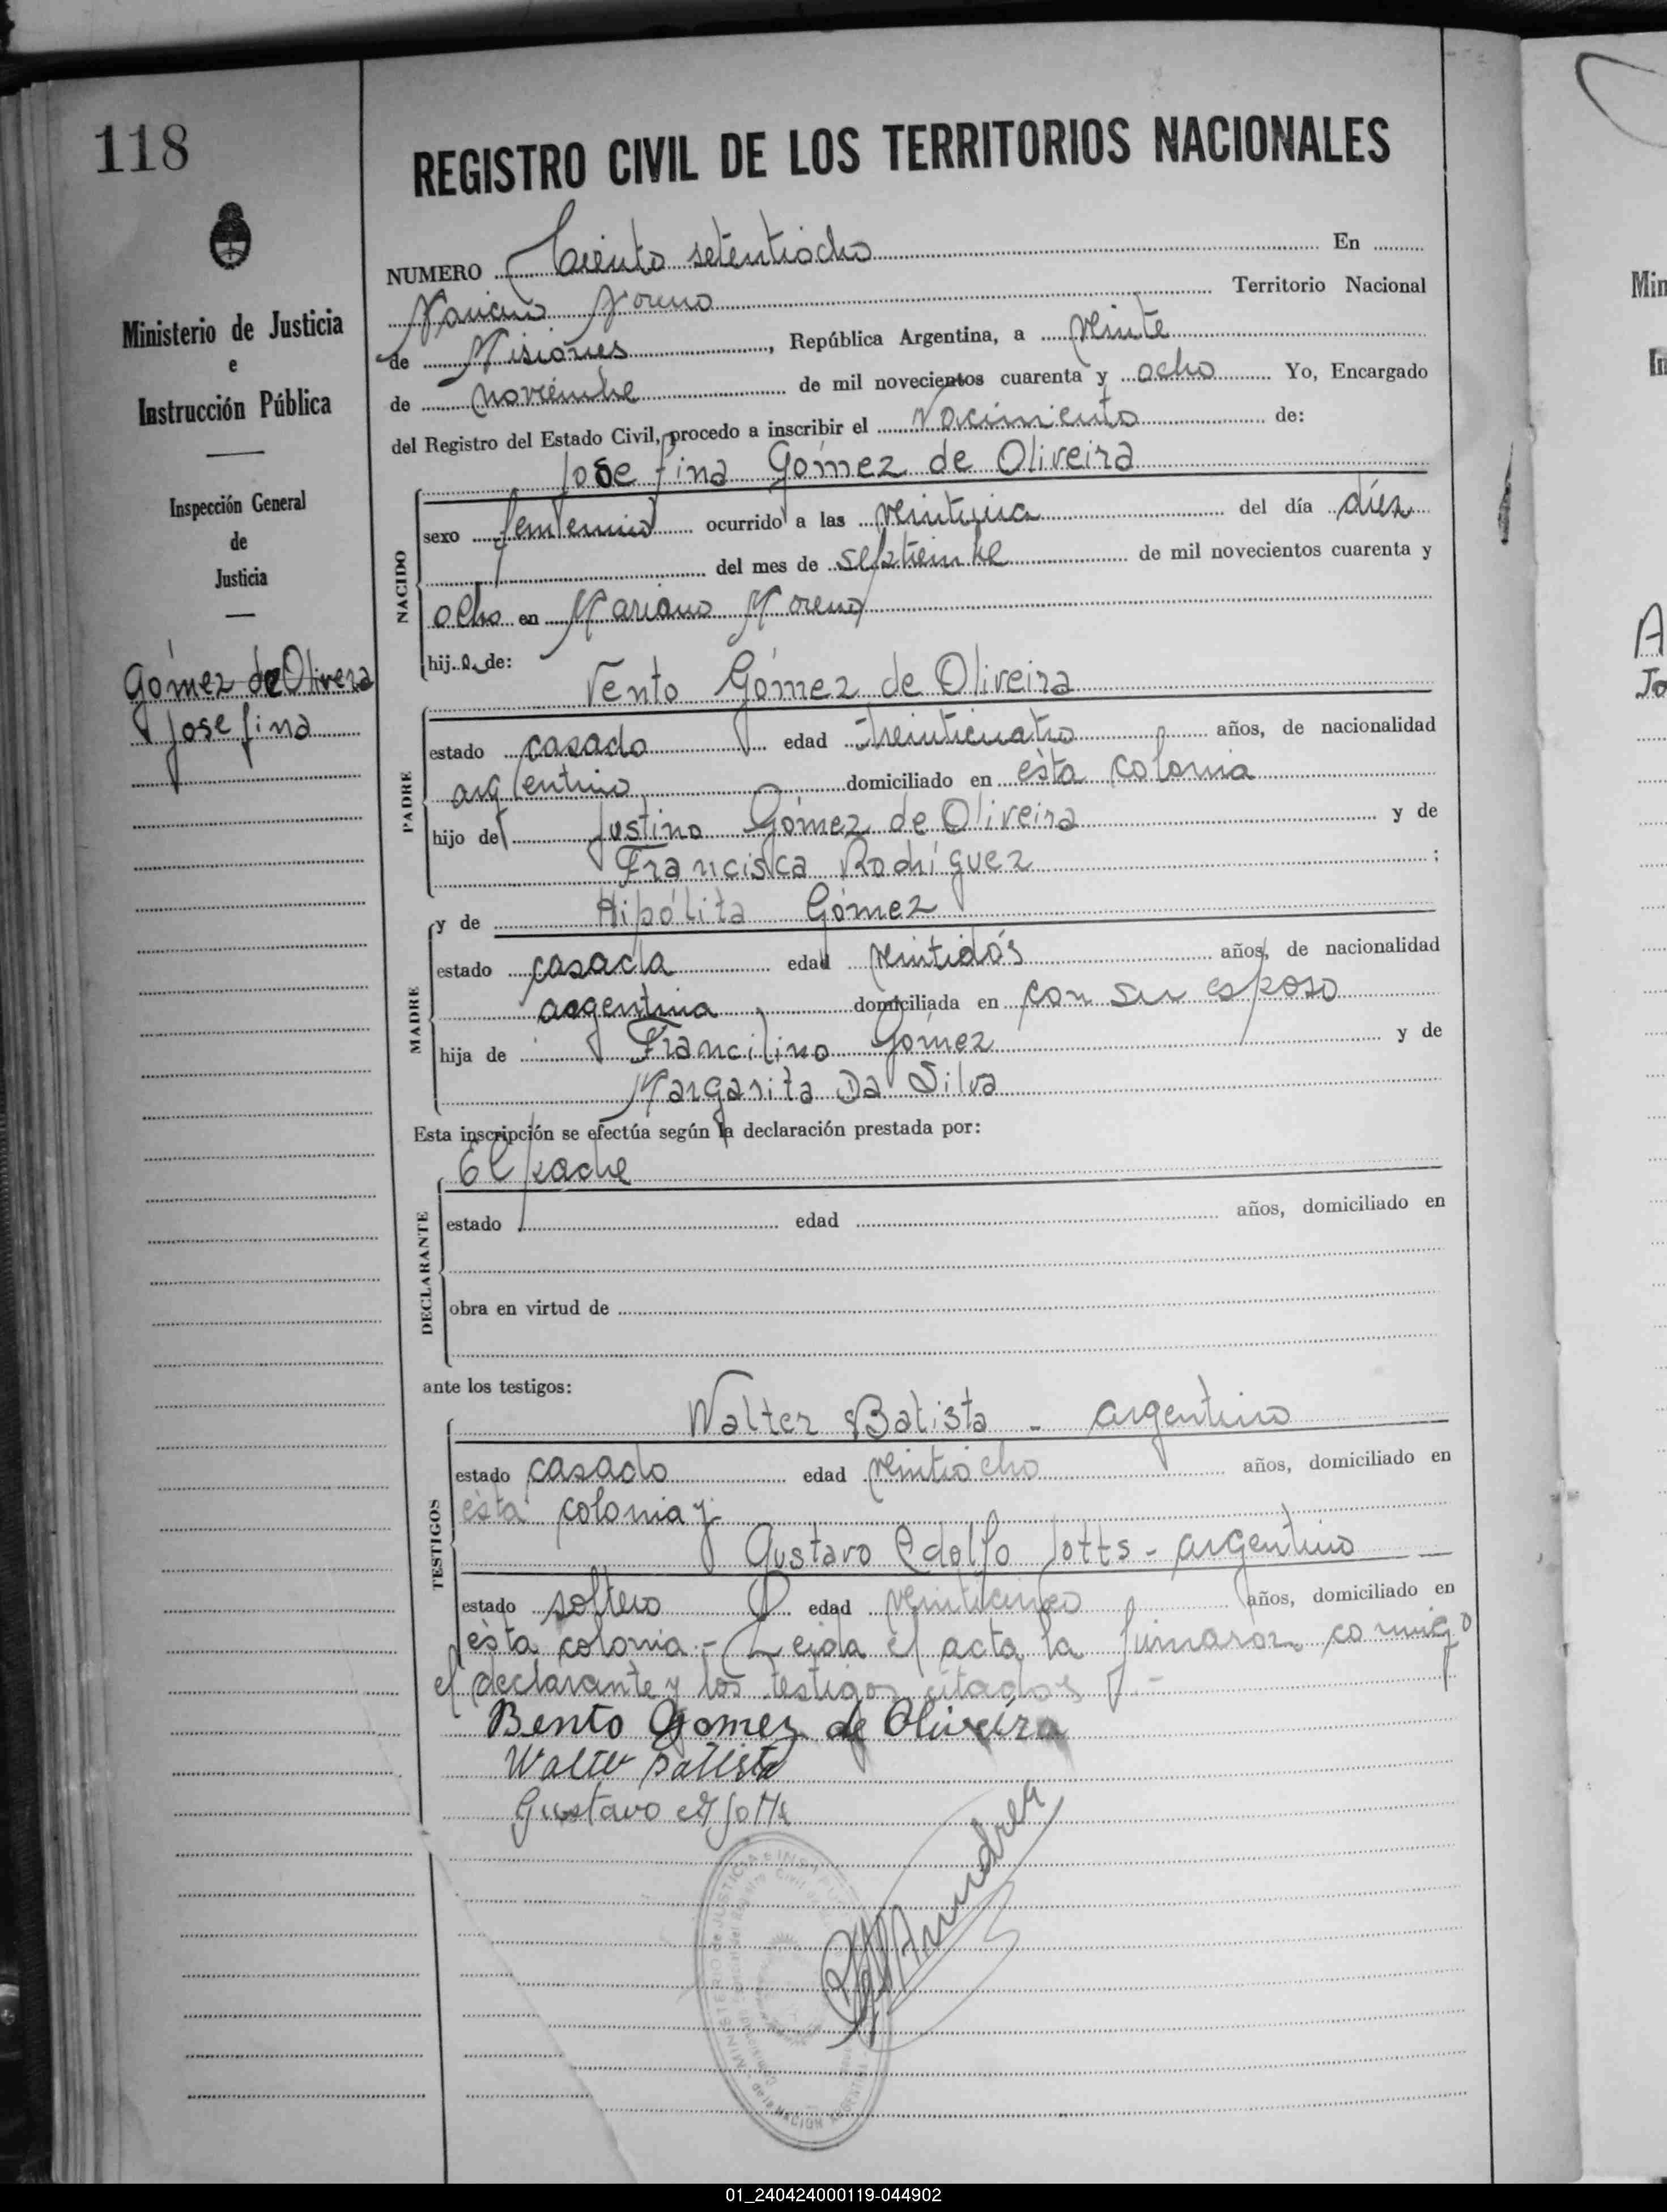 118
REGISTRO CIVIL DE LOS TERRITORIOS NACIONALES
Ministerio de Justicia
e
Instrucción Pública
Inspección General
de
Justicia
Gómez de Olivera
Josefina
NUMERO Ciento setentiocho En
Mariano Moreno Territorio Nacional
de Misiones, República Argentina, a veinte
de noviembre de mil novecientos cuarenta y ocho Yo, Encargado
del Registro del Estado Civil, procedo a inscribir el Nacimiento de:
Josefina Gómez de Oliveira
NACIDO
sexo femenino ocurrido a las veintiuna del día diez
del mes de septiembre de mil novecientos cuarenta y
ocho en Mariano Moreno
hij a de:
Vento Gómez de Oliveira
PADRE
estado casado edad treinticuatro años, de nacionalidad
argentino domiciliado en ésta colonia
hijo de Justino Gómez de Oliveira y de
Francisca Rodríguez ;
y de Hipólita Gómez
MADRE
estado casada edad veintidós años, de nacionalidad
argentina domiciliada en con su esposo
hija de Francilino Gómez y de
Margarita Da Silva
Esta inscripción se efectúa según la declaración prestada por:
El padre
DECLARANTE
estado edad años, domiciliado en
obra en virtud de
ante los testigos:
Walter Batista - argentino
TESTIGOS
estado casado edad veintiocho años, domiciliado en
ésta colonia y
Gustavo Adolfo Jotts - argentino
estado soltero edad veinticinco años, domiciliado en
ésta colonia.- Leida el acta la firmaron conmigo
el declarante y los testigos citados.-
Bento Gomez de Oliveira
Walter Batista
Gustavo Jotts
01_240424000119-044902